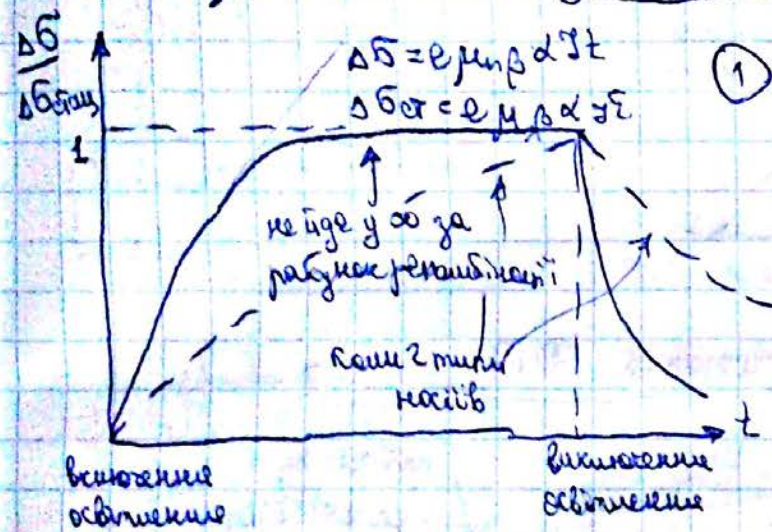 Δσ
Δσстац
Δσ = e μn β α J t
Δσст = e μ β α J τ
①
1
не йде у ∞ за
рахунок рекомбінації
коли 2 типи
носіїв
t
включення
освітлення
виключення
освітлення